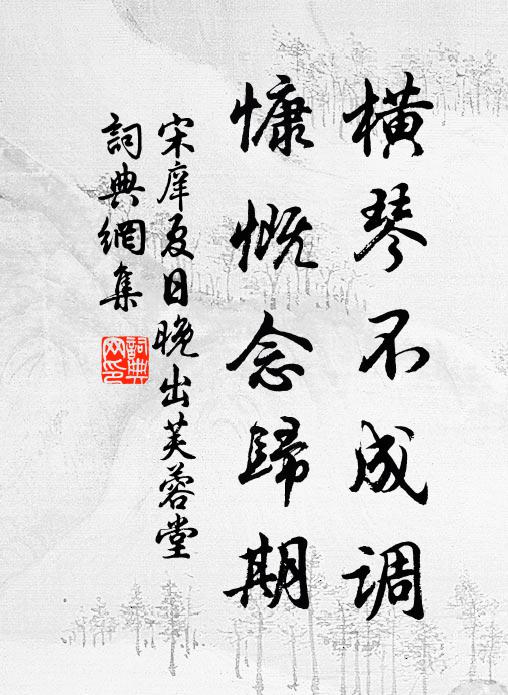 橫琴不成调
慷慨念歸期
宋庠夏日晚出芙蓉堂
詞典網集
詞典網印